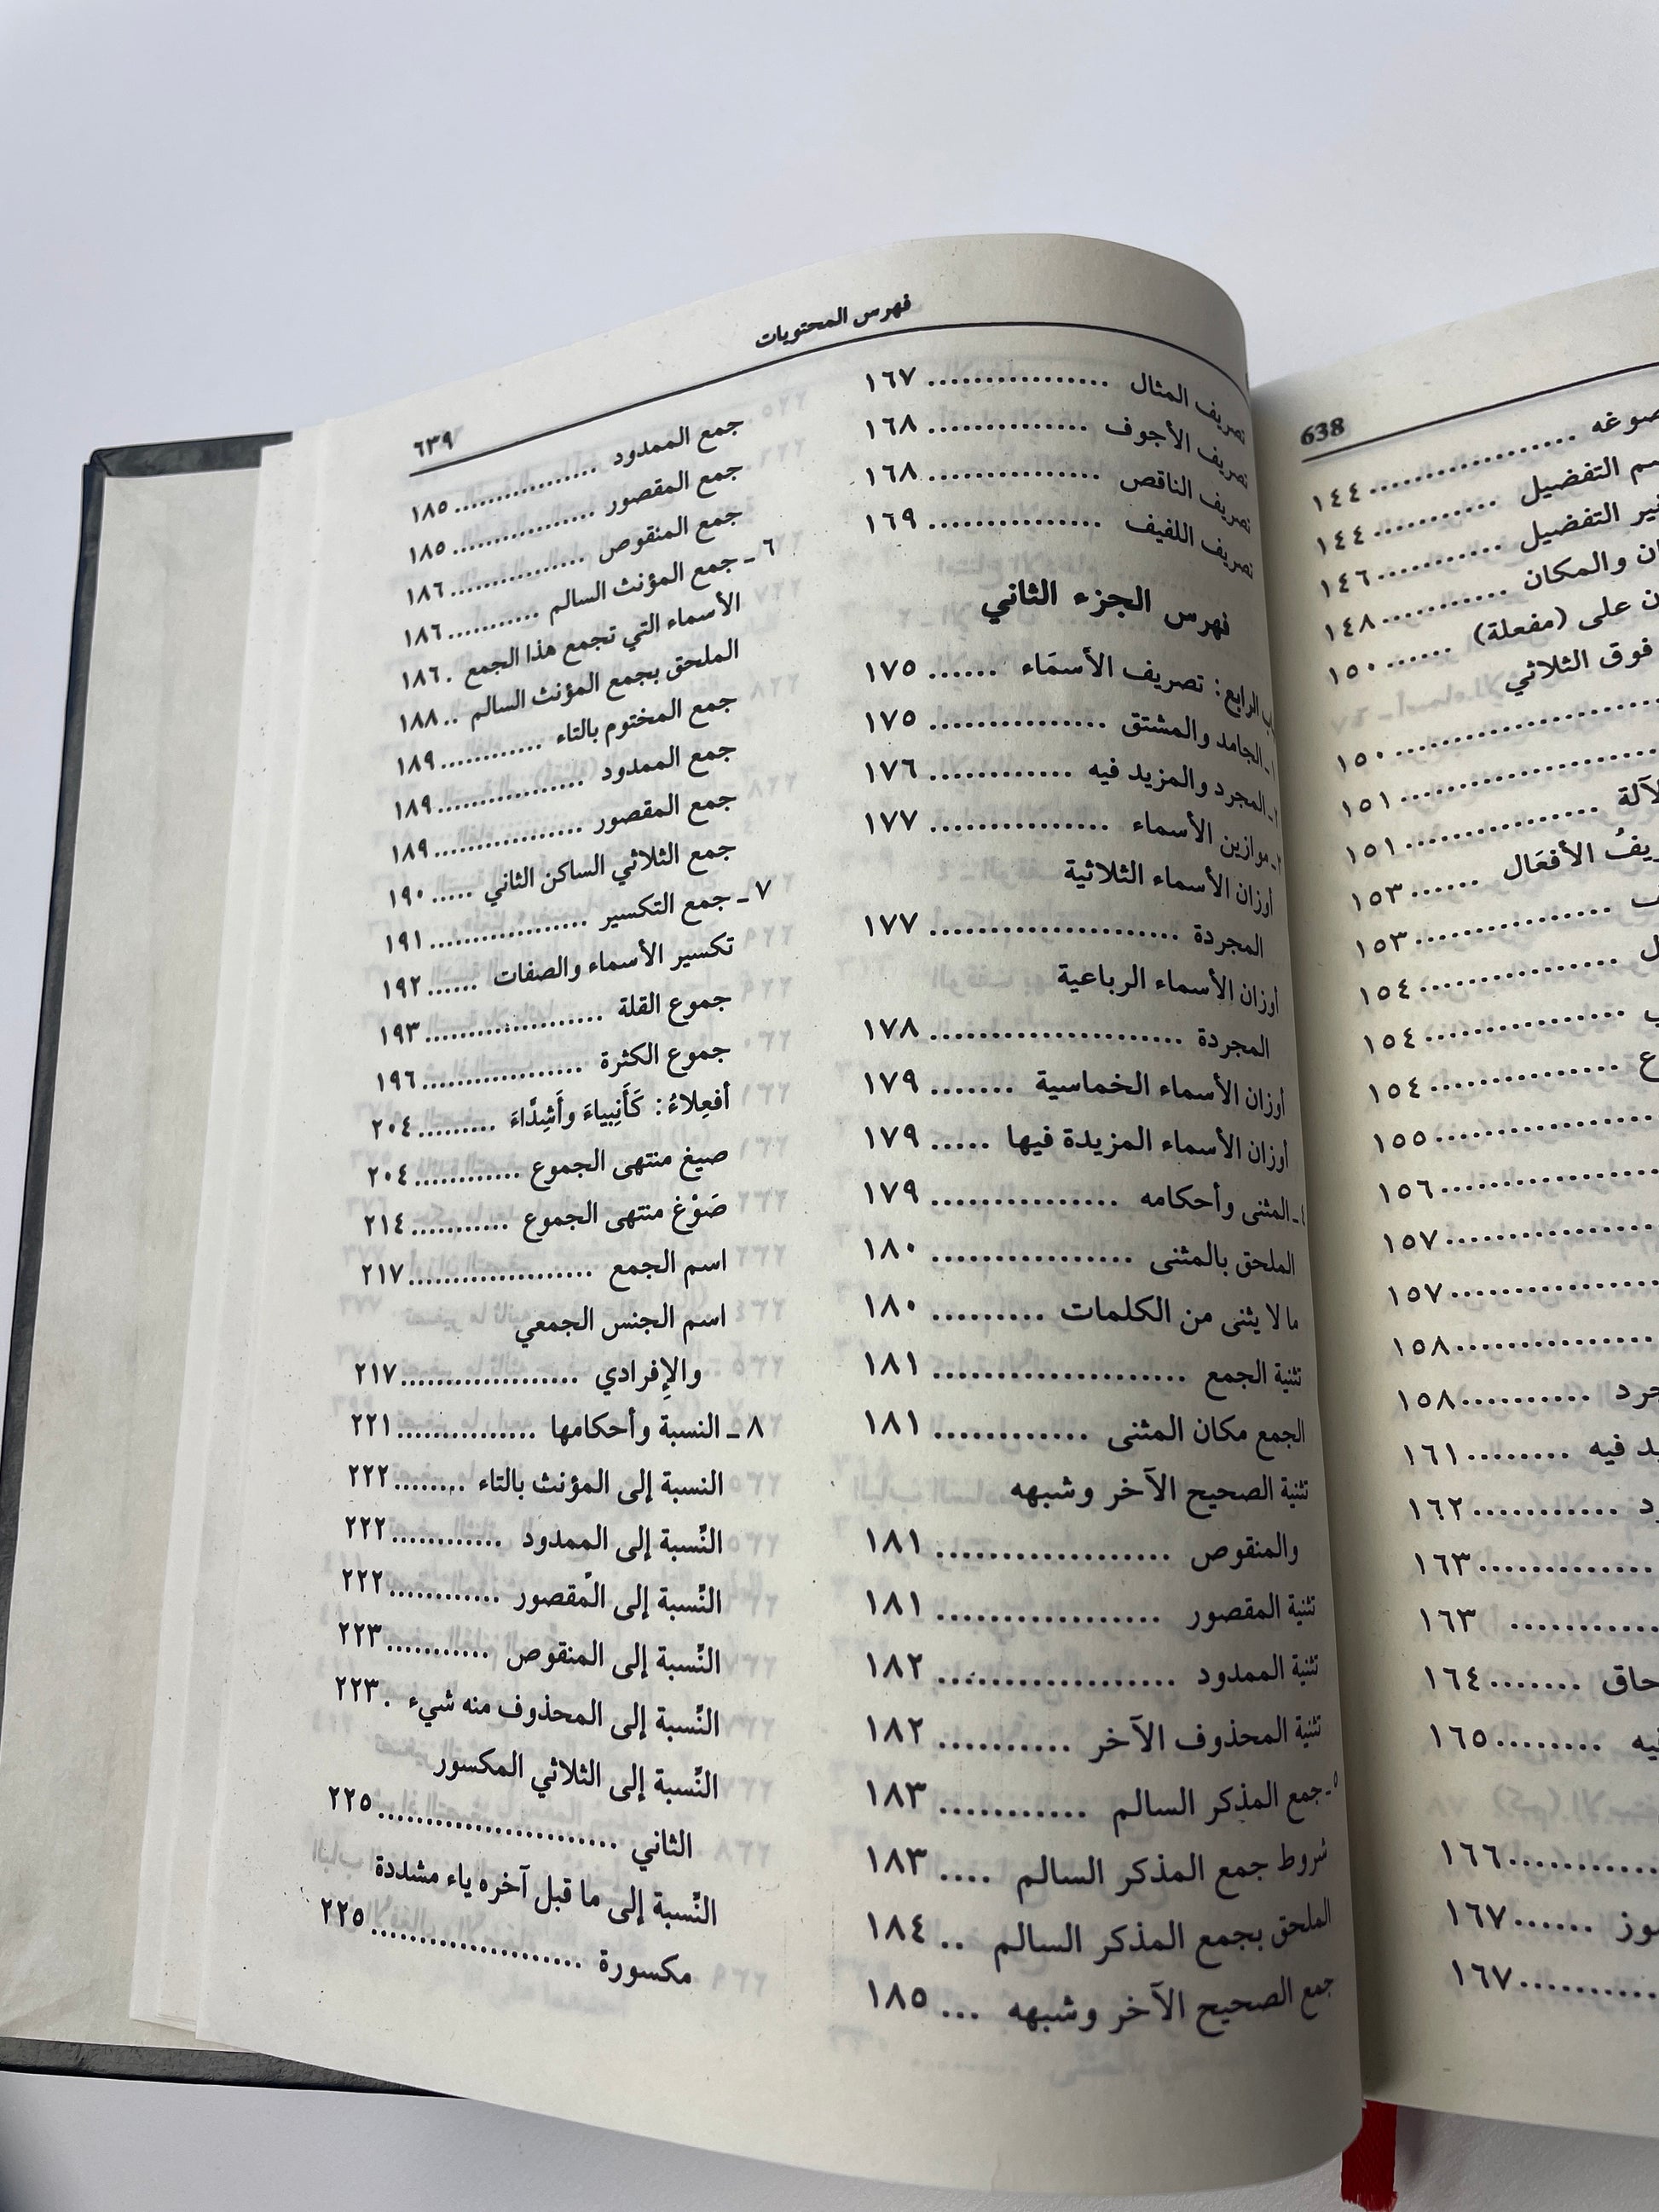 638
صوغه .... ١٤٤
التفضيل .... ١٤٤
التفضيل .... ١٤٦
والمكان .... ١٤٨
على (مفعلة) .... ١٥٠
فوق الثلاثي
.... ١٥٠
.... ١٥١
.... ١٥١
الأفعَال .... ١٥٣
.... ١٥٣
.... ١٥٤
.... ١٥٤
.... ١٥٤
.... ١٥٥
.... ١٥٦
.... ١٥٧
.... ١٥٧
.... ١٥٨
.... ١٥٨
فيه .... ١٦١
.... ١٦٢
.... ١٦٣
.... ١٦٣
.... ١٦٤
.... ١٦٥
.... ١٦٦
.... ١٦٧
.... ١٦٧
فهرس المحتويات
٦٣٩
تصريف المثال .... ١٦٧
تصريف الأجوف .... ١٦٨
تصريف الناقص .... ١٦٨
تصريف اللفيف .... ١٦٩
فهرس الجزء الثاني
الرابع: تصريف الأسمَاء .... ١٧٥
الجامد والمشتق .... ١٧٥
المجرد والمزيد فيه .... ١٧٦
موازين الأسماء .... ١٧٧
أوزان الأسماء الثلاثية
المجردة .... ١٧٧
أوزان الأسماء الرباعية
المجردة .... ١٧٨
أوزان الأسماء الخماسية .... ١٧٩
أوزان الأسماء المزيدة فيها .... ١٧٩
المثنى وأحكامه .... ١٧٩
الملحق بالمثنى .... ١٨٠
ما لا يثنى من الكلمات .... ١٨٠
تثنية الجمع .... ١٨١
الجمع مكان المثنى .... ١٨١
تثنية الصحيح الآخر وشبهه
والمنقوص .... ١٨١
تثنية المقصور .... ١٨١
تثنية الممدود .... ١٨٢
تثنية المحذوف الآخر .... ١٨٢
٥ ـ جمع المذكر السالم .... ١٨٣
شروط جمع المذكر السالم .... ١٨٣
الملحق بجمع المذكر السالم .. ١٨٤
جمع الصحيح الآخر وشبهه ... ١٨٥
جمع الممدود .... ١٨٥
جمع المقصور .... ١٨٥
جمع المنقوص .... ١٨٦
٦ ـ جمع المؤنث السالم .... ١٨٦
الأسماء التي تجمع هذا الجمع . ١٨٦
الملحق بجمع المؤنث السالم .. ١٨٨
جمع المختوم بالتاء .... ١٨٩
جمع الممدود .... ١٨٩
جمع المقصور .... ١٨٩
جمع الثلاثي الساكن الثاني .... ١٩٠
٧ ـ جمع التكسير .... ١٩١
تكسير الأسماء والصفات .... ١٩٢
جموع القلة .... ١٩٣
جموع الكثرة .... ١٩٦
أفعِلاءُ: كَأَنبِياءَ وأَشِدَّاءَ .... ٢٠٤
صيغ منتهى الجموع .... ٢٠٤
صَوْغ منتهى الجموع .... ٢١٤
اسم الجمع .... ٢١٧
اسم الجنس الجمعي
والإفرادي .... ٢١٧
٨ ـ النسبة وأحكامها .... ٢٢١
النسبة إلى المؤنث بالتاء .... ٢٢٢
النِّسبة إلى الممدود .... ٢٢٢
النِّسبة إلى المقصور .... ٢٢٢
النِّسبة إلى المنقوص .... ٢٢٣
النِّسبة إلى المحذوف منه شيء . ٢٢٣
النِّسبة إلى الثلاثي المكسور
الثاني .... ٢٢٥
النِّسبة إلى ما قبل آخره ياء مشددة
مكسورة .... ٢٢٥